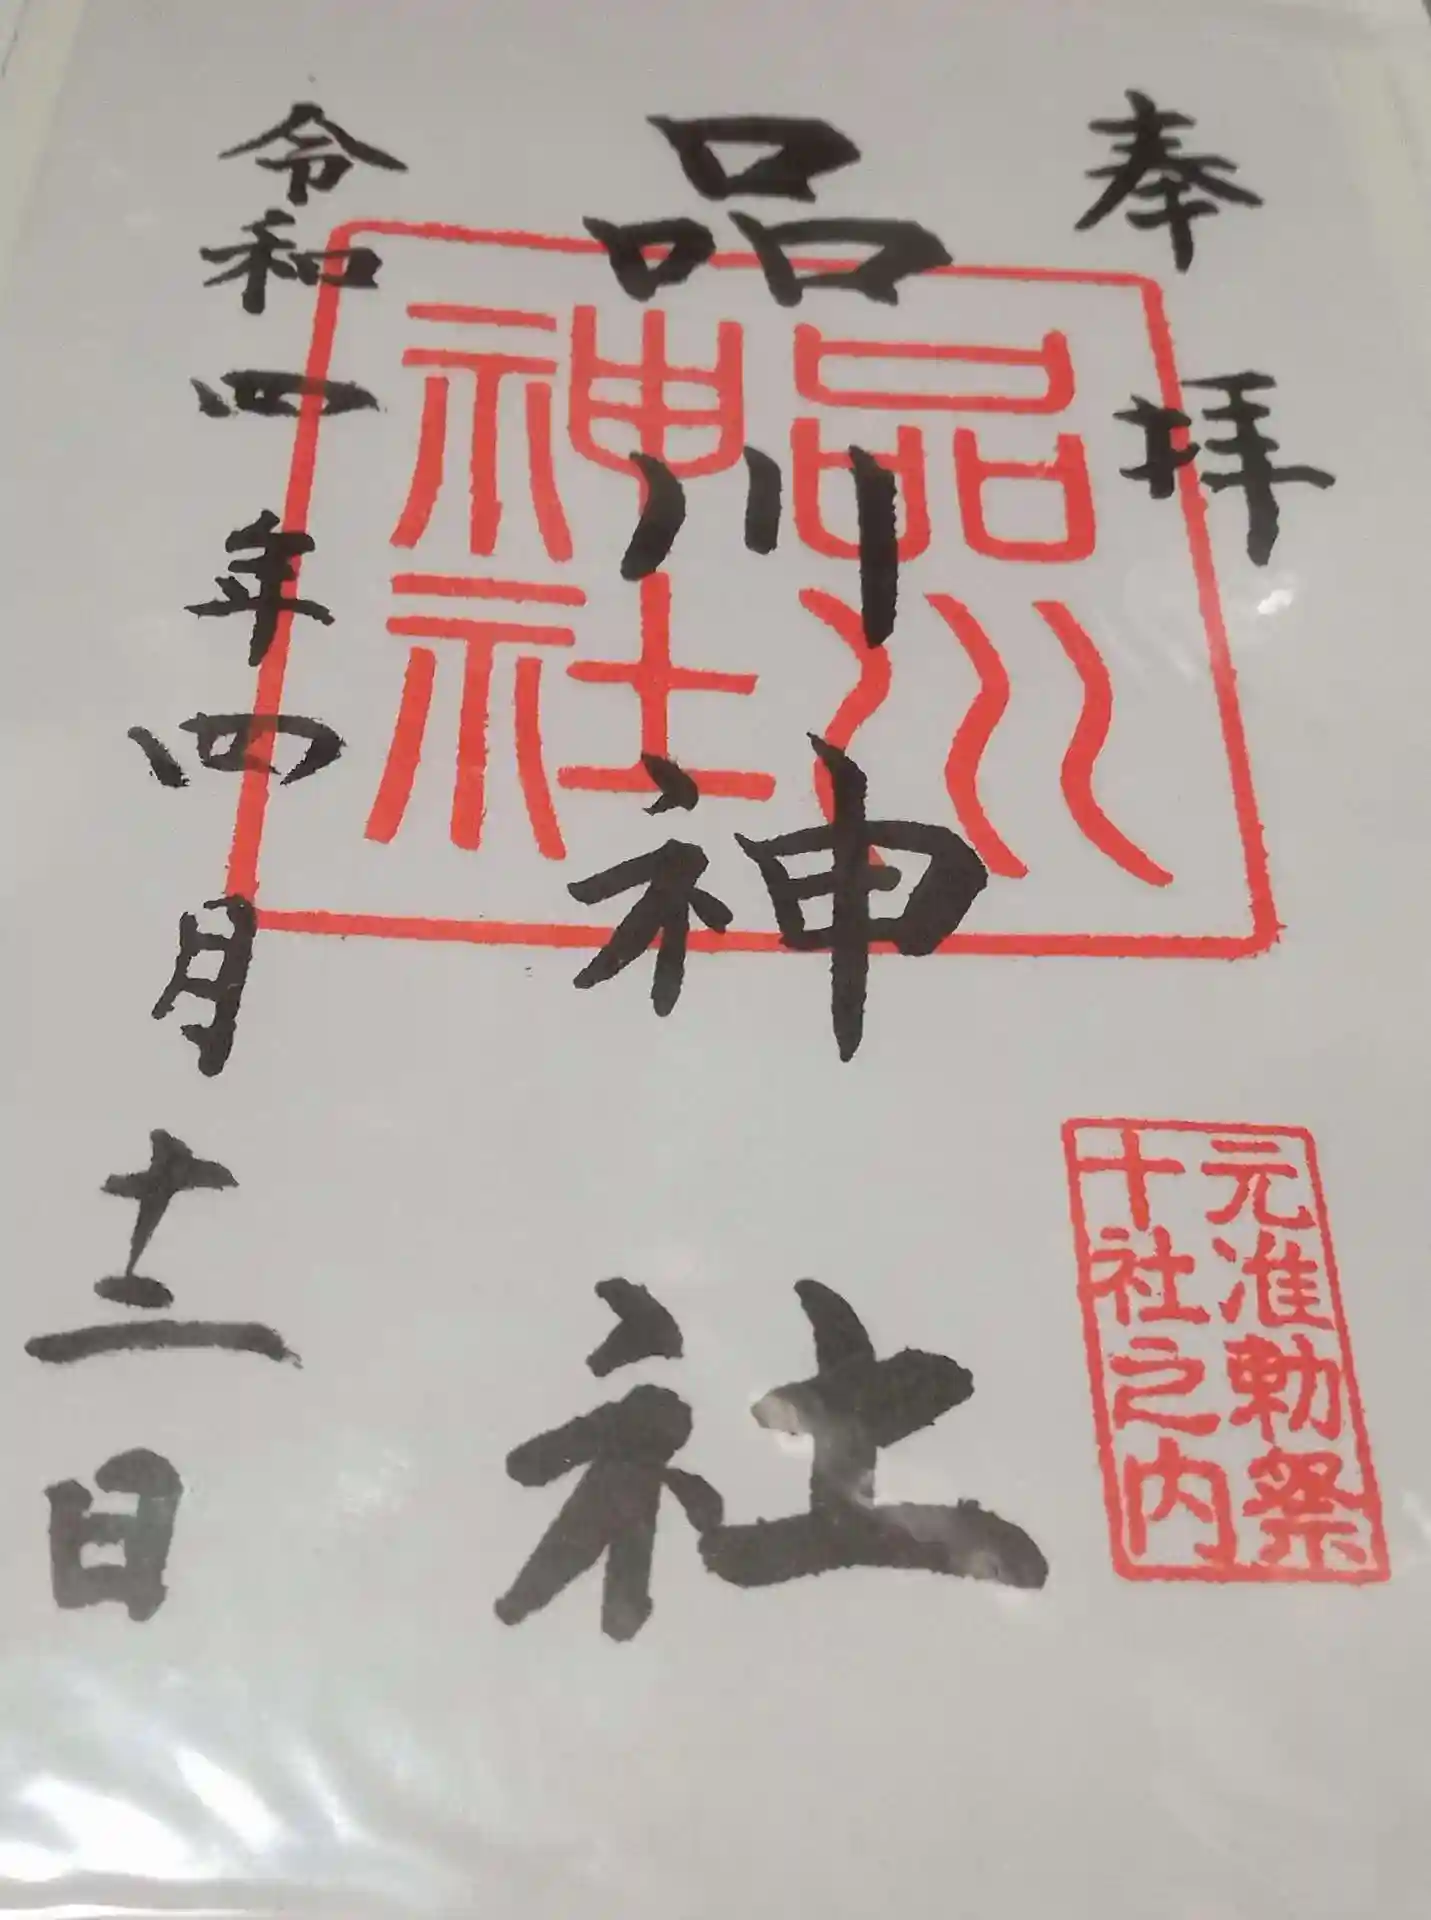 奉拝
元准勅祭
十社之内
品川神社
品川
神社
令和四年四月十二日